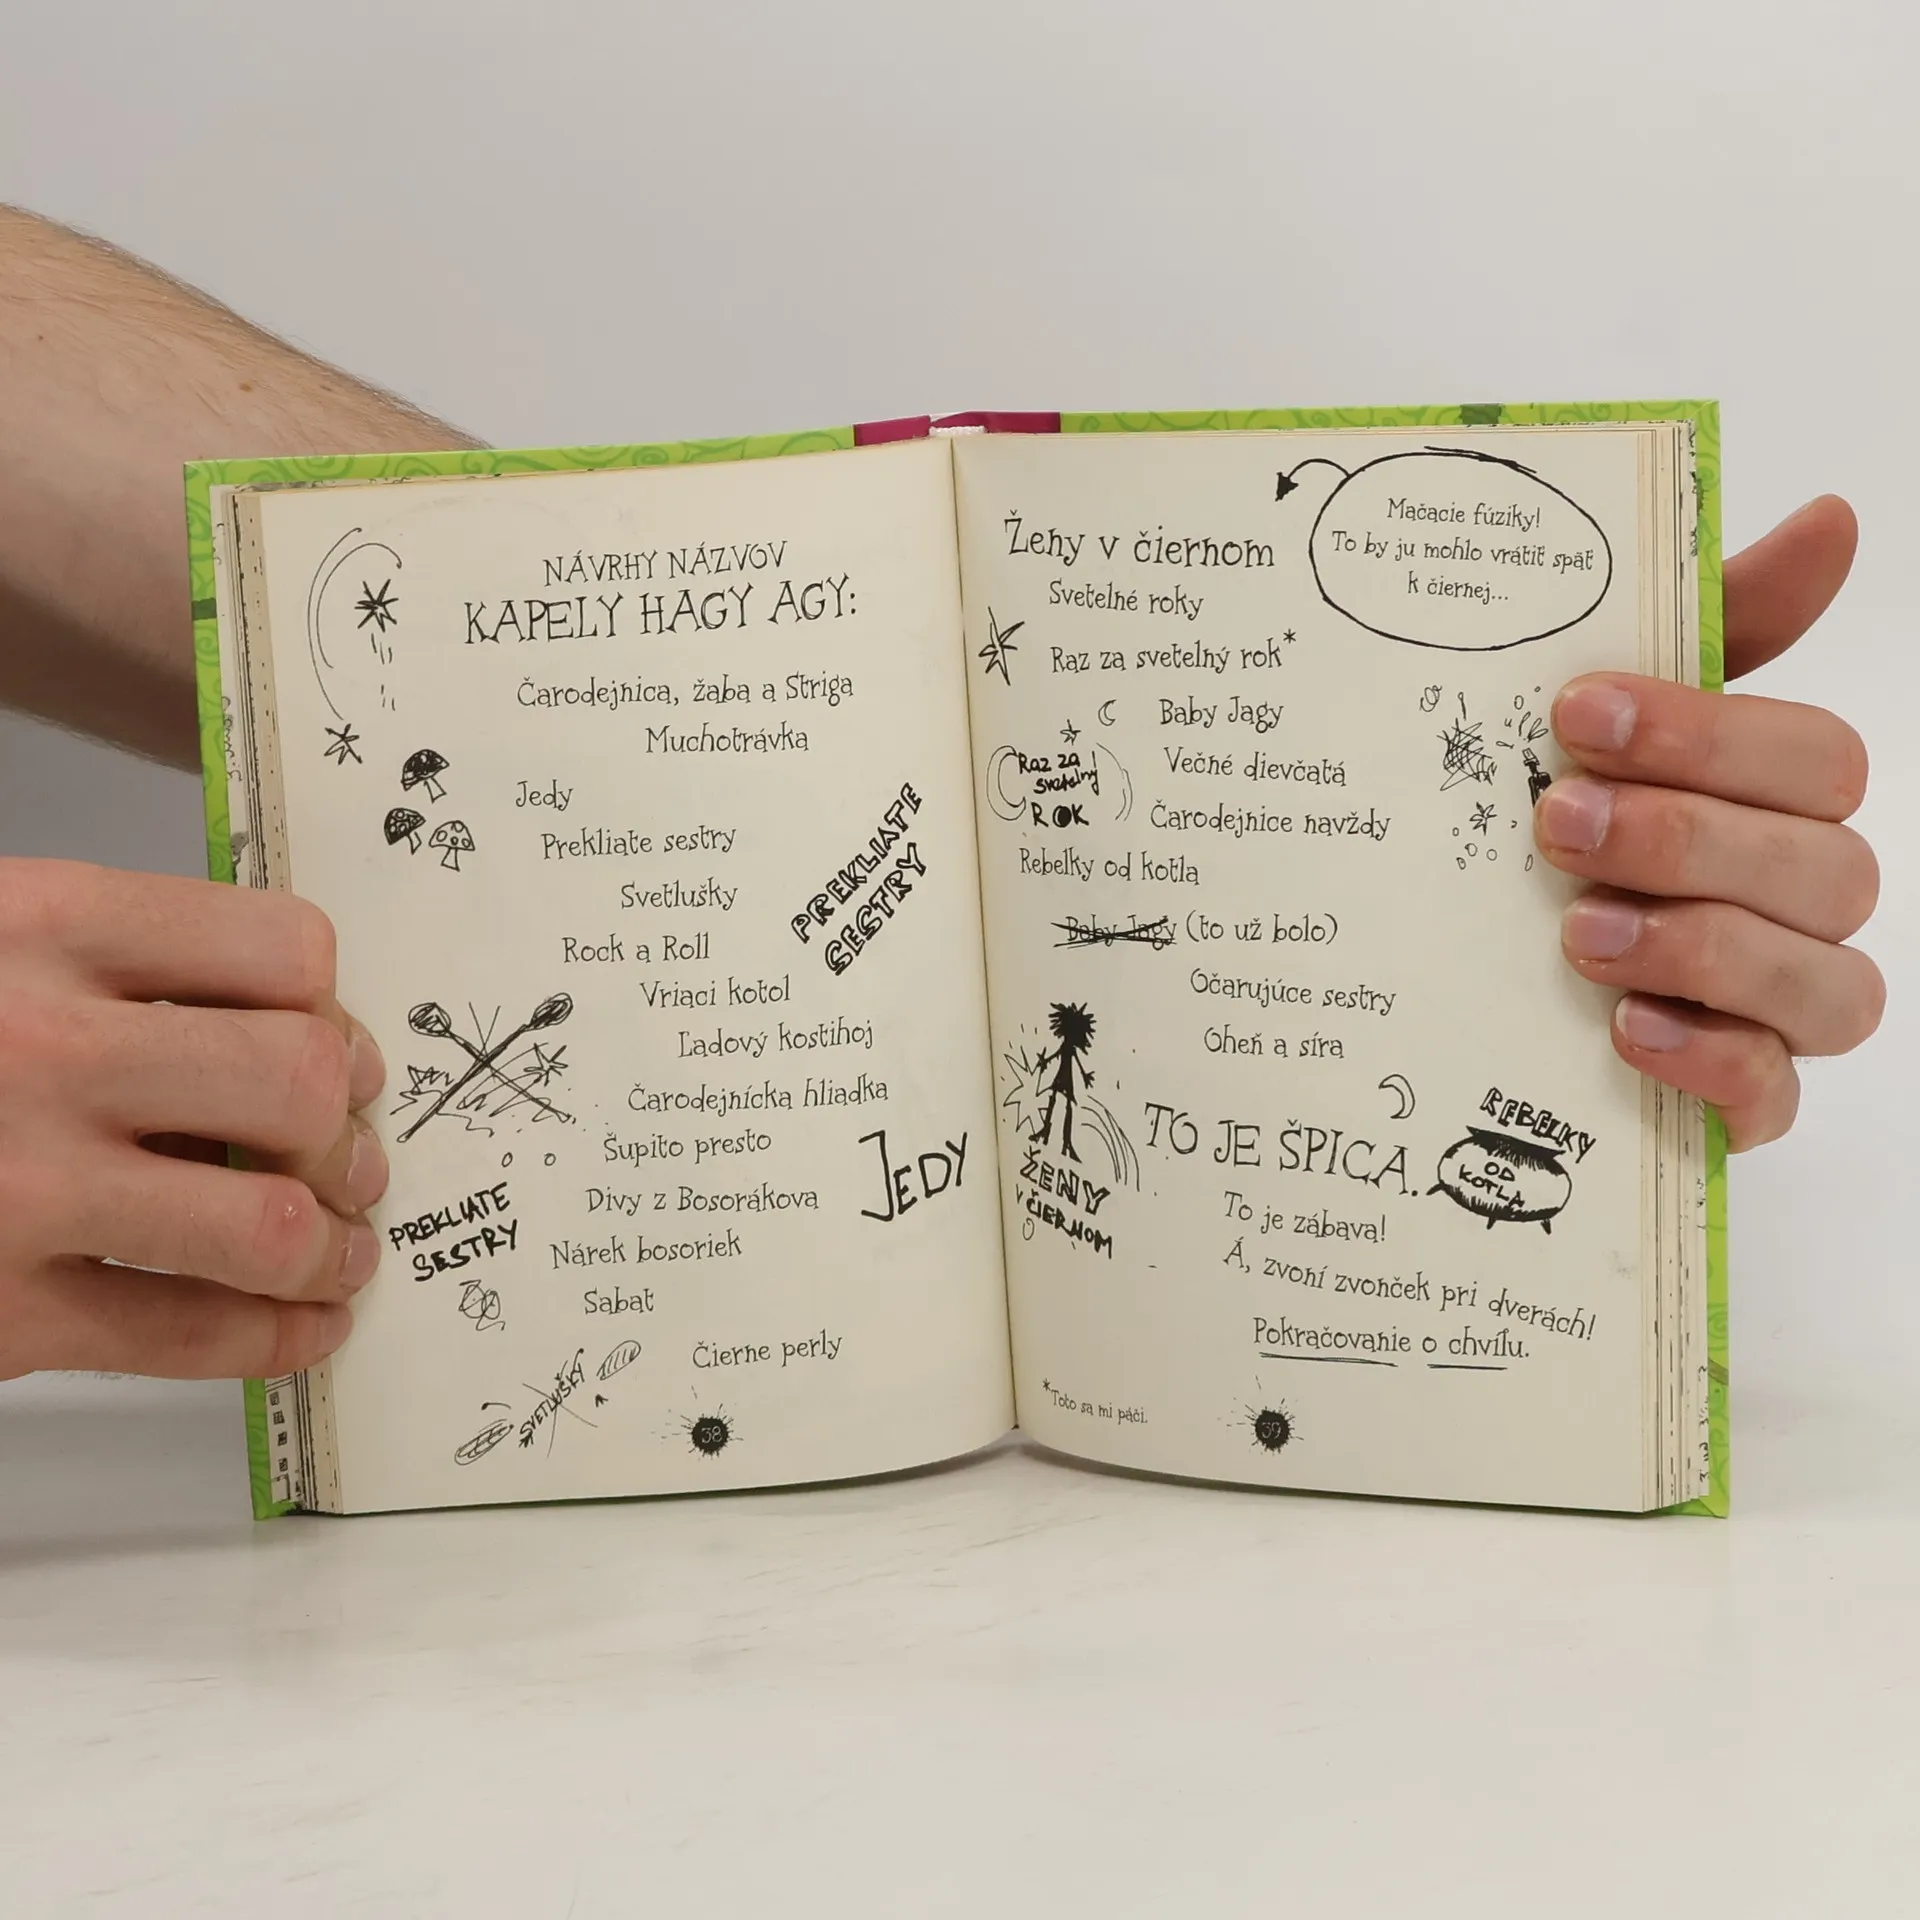 NÁVRHY NÁZVOV
KAPELY HAGY AGY:
Čarodejnica, žaba a Striga
Muchotrávka
Jedy
Prekliate sestry
PREKLIATE
SESTRY
Svetlušky
Rock a Roll
Vriaci kotol
Ľadový kostihoj
Čarodejnícka hliadka
Šupito presto
JEDY
Divy z Bosorákova
PREKLIATE
SESTRY
Nárek bosoriek
Sabat
Čierne perly
SVETLUŠKY
38
Ženy v čiernom
Mačacie fúziky!
To by ju mohlo vrátiť späť
k čiernej...
Svetelné roky
Raz za svetelný rok*
Baby Jagy
Raz za
svetelný
ROK
Večné dievčatá
Čarodejnice navždy
Rebelky od kotla
Baby Jagy (to už bolo)
Očarujúce sestry
Oheň a síra
ŽENY
V ČIERNOM
TO JE ŠPICA.
REBELKY
OD
KOTLA
To je zábava!
Á, zvoní zvonček pri dverách!
Pokračovanie o chvíľu.
*Toto sa mi páči.
39